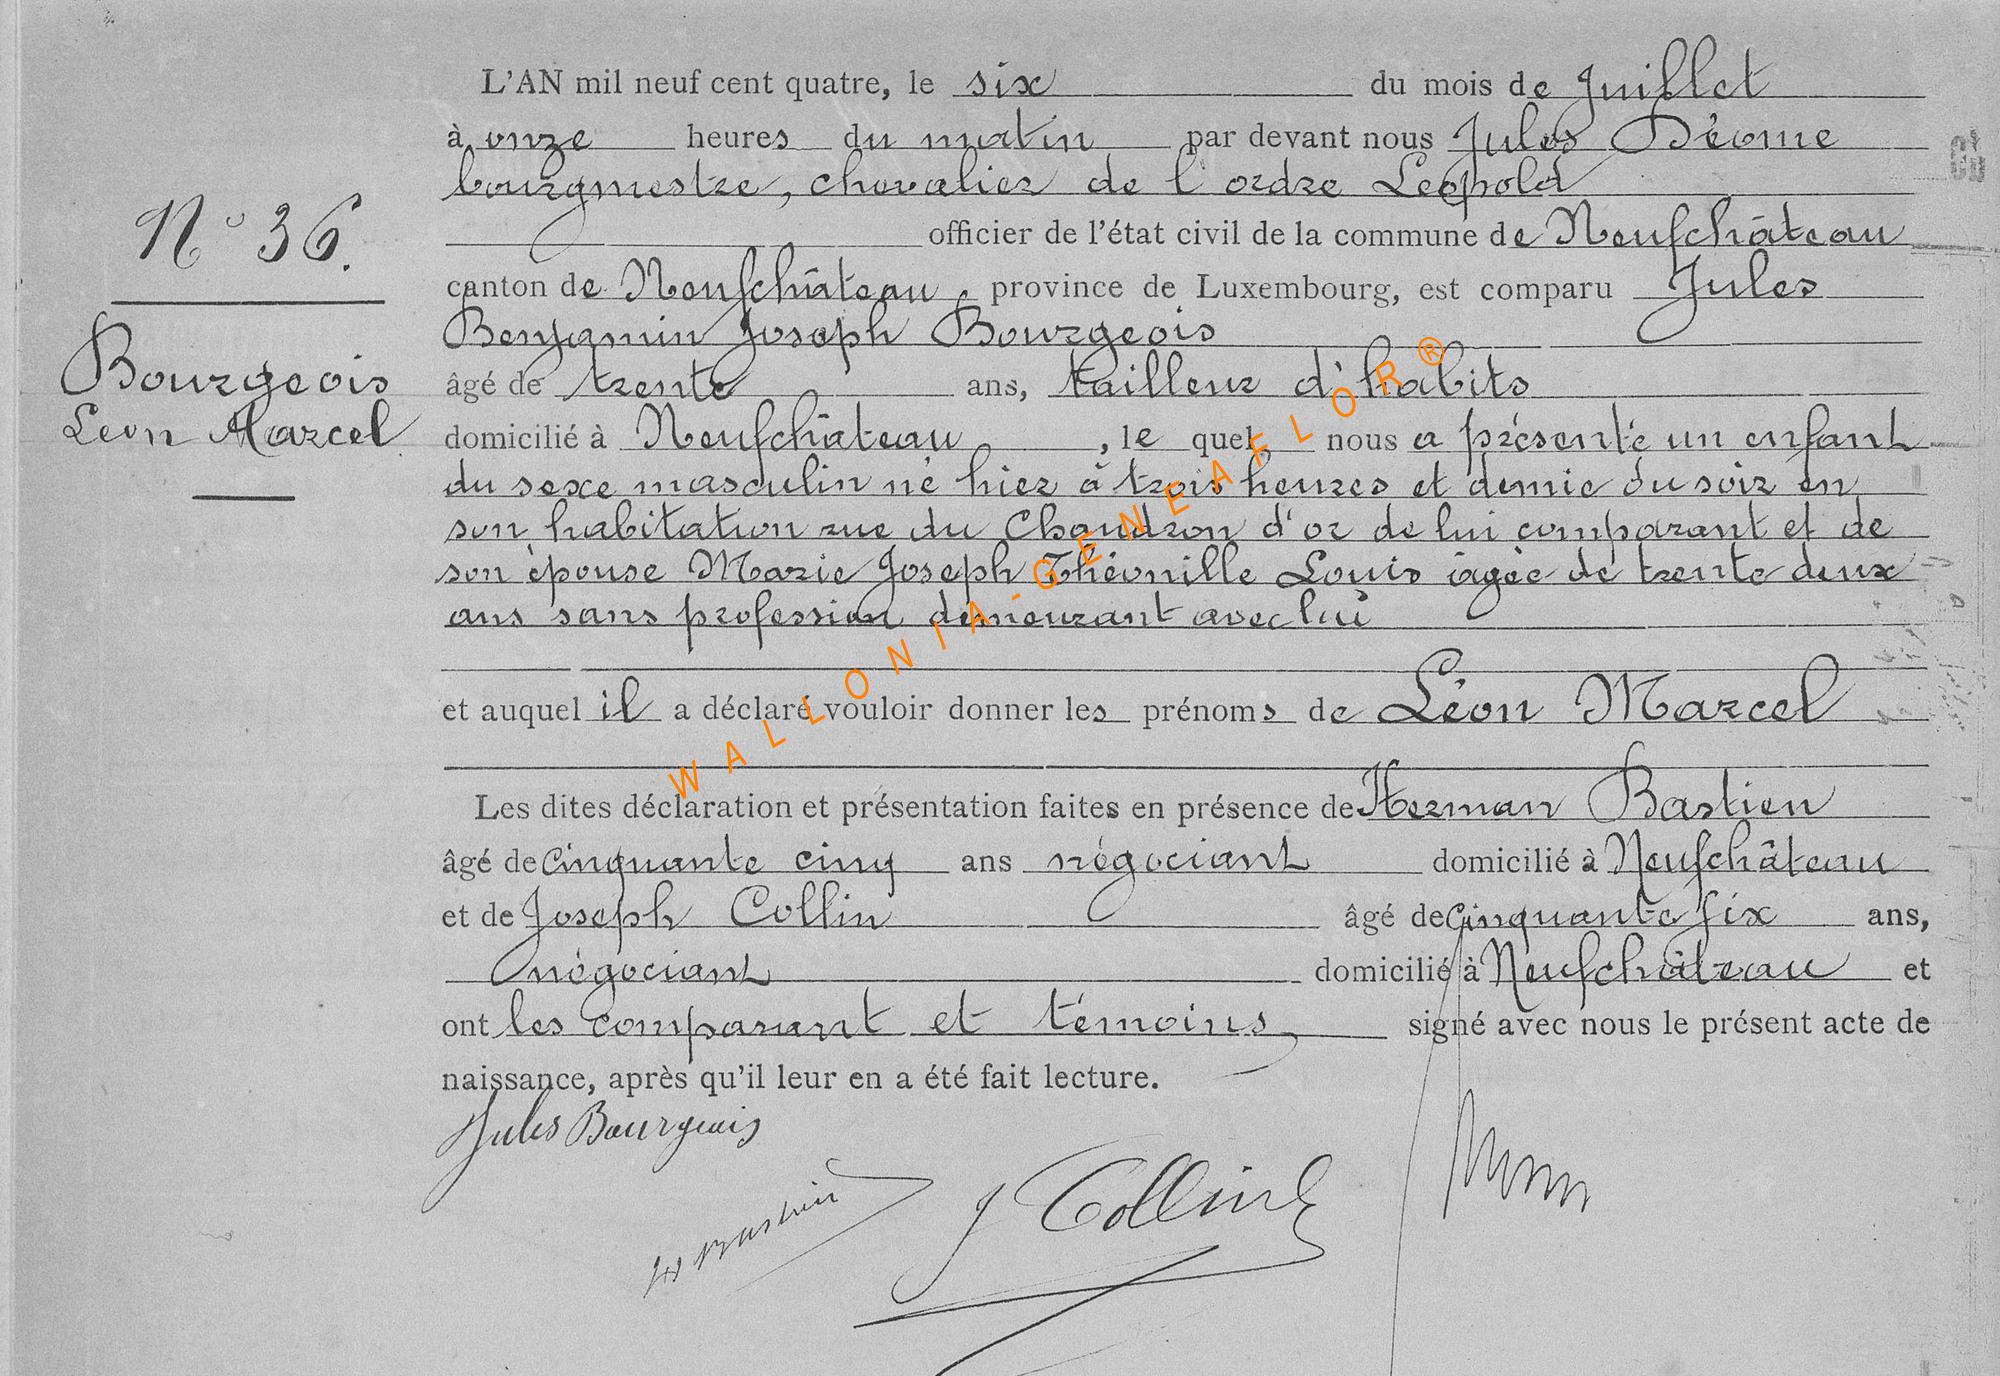 L'AN mil neuf cent quatre, le six du mois de Juillet
à onze heures du matin par devant nous Jules Déome
bourgmestre, chevalier de l'ordre Léopold
officier de l'état civil de la commune de Neufchâteau
canton de Neufchâteau, province de Luxembourg, est comparu Jules
Benjamin Joseph Bourgeois
âgé de trente ans, tailleur d'habits
domicilié à Neufchâteau, le quel, nous a présenté un enfant
du sexe masculin né hier à trois heures et demie du soir en
son habitation rue du Chaudron d'or de lui comparant et de
son épouse Marie Joseph Théonille Louis âgée de trente deux
ans sans profession demeurant avec lui
et auquel il a déclaré vouloir donner les prénoms de Léon Marcel
Les dites déclaration et présentation faites en présence de Herman Bastien
âgé de Cinquante cinq ans négociant domicilié à Neufchâteau
et de Joseph Collin âgé de Cinquante six ans,
négociant domicilié à Neufchâteau et
ont les comparant et témoins signé avec nous le présent acte de
naissance, après qu'il leur en a été fait lecture.
N° 36.
Bourgeois
Léon Marcel
Jules Bourgeois
H Bastien
J Collin
WALLONIA-GENEAFLOR®